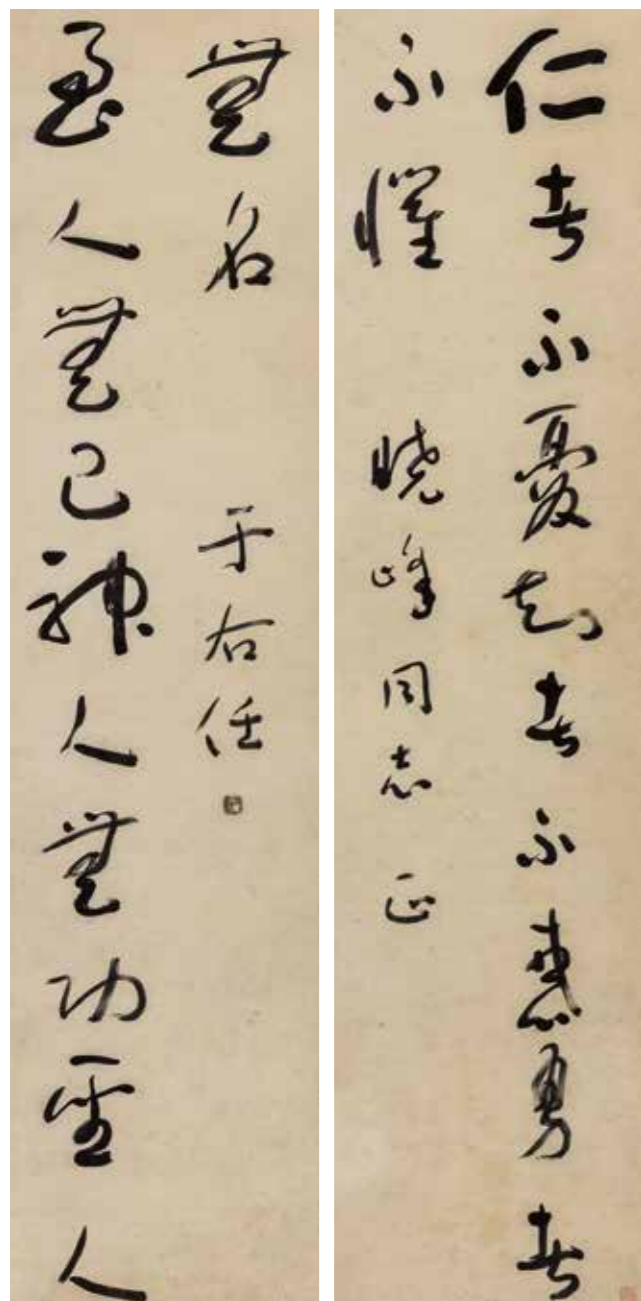 仁者不憂知者不惑勇者
不懼 曉峰同志 正
至人無己神人無功聖人
無名 于右任